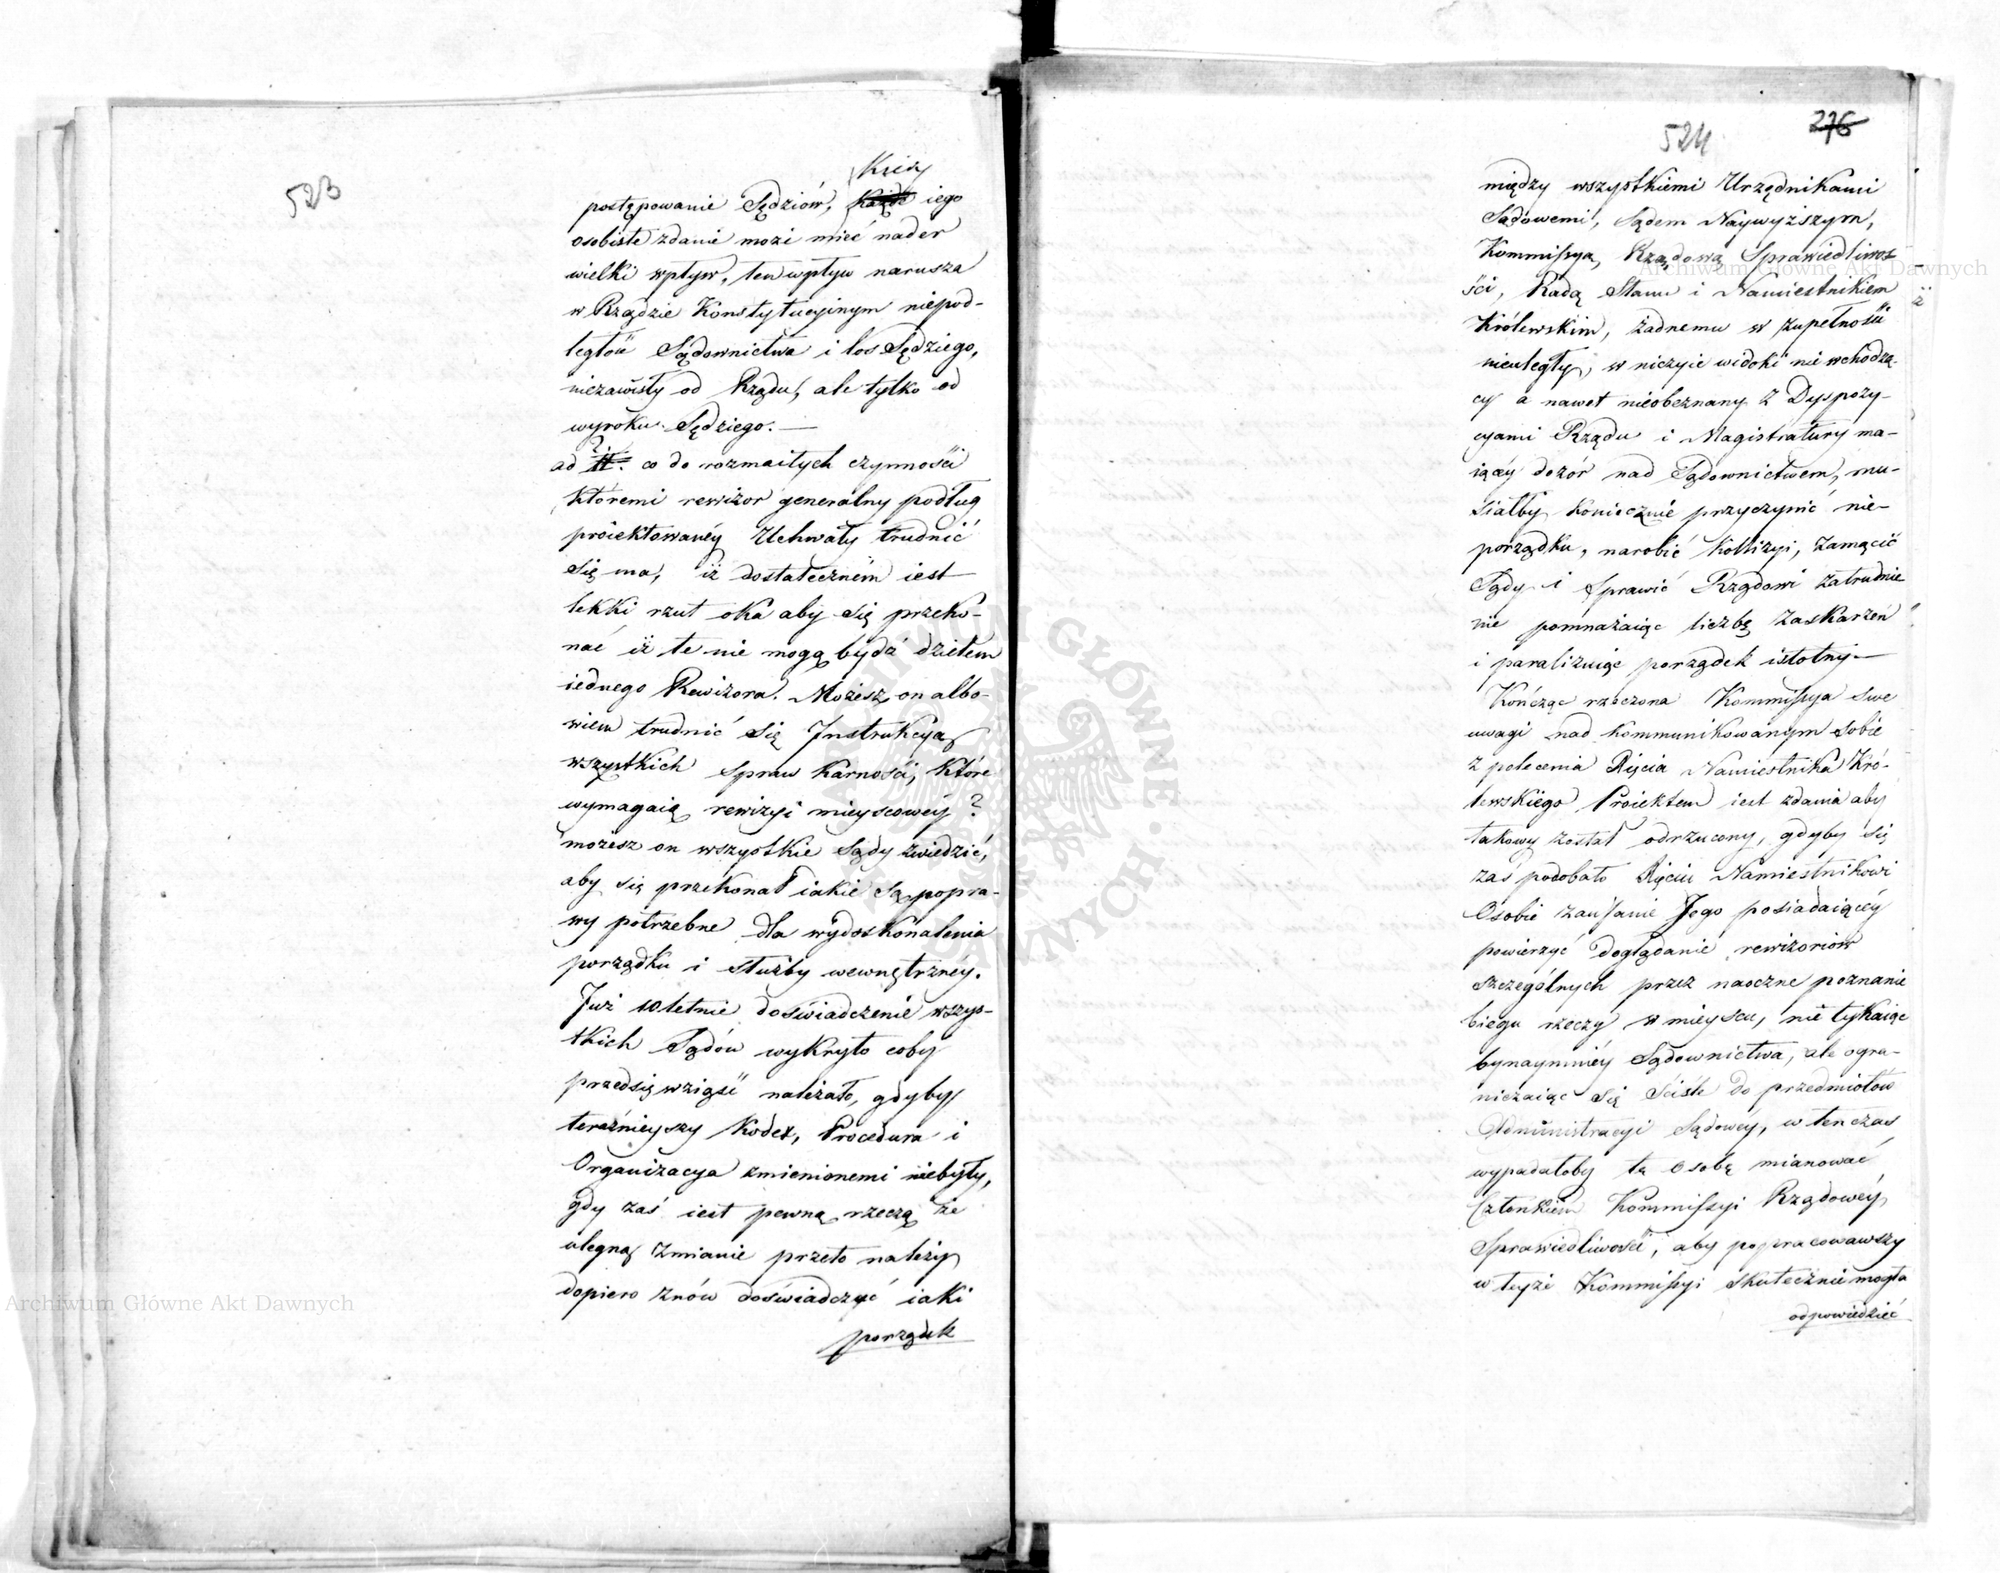 523
Kiedy
postępowanie Sędziów, każde iego
osobiste zdanie może mieć nader
wielki wpływ, ten wpływ narusza
w Rządzie Konstytucyinym niepod-
ległość Sądownictwa i los Sędziego,
niezawisły od Rządu, ale tylko od
wyroku Sędziego. —
ad 2 co do rozmaitych czynności
któremi rewizor generalny podług
proiektowanéy Uchwały trudnić
się ma, iż dostateczném iest
lekki rzut oka aby się przeko-
nać iż te nie mogą bydź dziełem
iednego Rewizora. Możesz on albo-
wiem trudnić się Instrukcyą
wszystkich spraw karności, które
wymagaią rewizyi mieyscowéy?
możesz on wszystkie Sądy zwiedzić,
aby się przekonał iakie są popra-
wy potrzebne dla wydoskonalenia
porządku i służby wewnętrznéy.
Już 10letnie doświadczenie wszys-
tkich Sądów wykryło coby
przedsięwziąść należało, gdyby
teraźnieyszy Kodex, Procedura i
Organizacya zmienionemi niebyły,
gdy zaś iest pewną rzeczą że
ulegną zmianie przeto należy
dopiero znów doświadczyć iaki
porządek
524
276
między wszystkiemi Urzędnikami
Sądowemi, Sądem Naywyższym,
Kommissyą Rządową Sprawiedliwos
ści, Radą Stanu i Namiestnikiem
Królewskim, żadnemu w zupełności
nieuległy, w niczyie widoki nie wchodzą-
cy a nawet nieobeznany z Dyspozy-
cyami Rządu i Magistratury ma-
iącéy dozór nad Sądownictwem, mu-
siałby koniecznie przyczynić nie-
porządku, narobić kollizyi, zamącić
Sądy i sprawić Rządowi zatrudnie
nie pomnażaiąc liczbę zaskarżeń
i paraliżuiąc porządek istotny —
Kończąc rzeczona Kommissya swe
uwagi nad kommunikowanym sobie
z polecenia Xięcia Namiestnika Kró-
lewskiego Proiektem iest zdania aby
takowy został odrzucony, gdyby się
zaś podobało Xięciu Namiestnikowi
Osobie zaufanie Jego posiadaiącéy
powierzyć doglądanie rewizoriów
szczególnych przez naoczne poznanie
biegu rzeczy w mieyscu, nie tykaiąc
bynaymniéy Sądownictwa, ale ogra-
niczaiąc się ściśle do przedmiotów
Administracyi Sądowéy, w ten czas
wypadałoby tę osobę mianować
Członkiem Kommissyi Rządowéy
Sprawiedliwości, aby popracowawszy
w teyże Kommissyi skutecznie mogła
odpowiedzieć
Archiwum Główne Akt Dawnych
Archiwum Główne Akt Dawnych